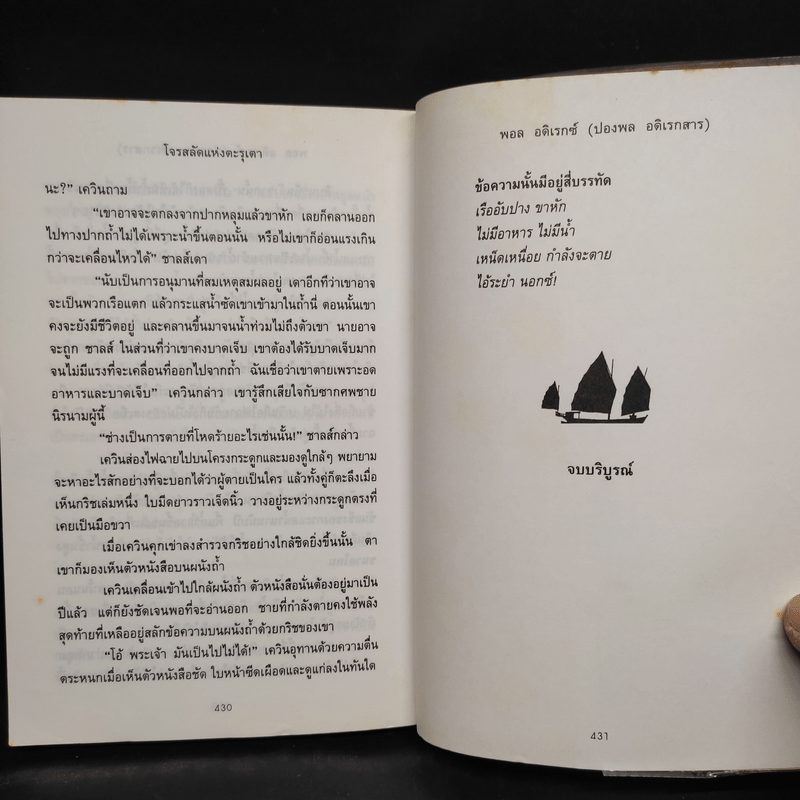 โจรสลัดแห่งตะรุเตา
นะ?” เควินถาม
“เขาอาจจะตกลงจากปากหลุมแล้วขาหัก เลยก็คลานออก
ไปทางปากถ้ำไม่ได้เพราะน้ำขึ้นตอนนั้น หรือไม่เขาก็อ่อนแรงเกิน
กว่าจะเคลื่อนไหวได้” ชาลส์เดา
“นับเป็นการอนุมานที่สมเหตุสมผลอยู่ เดาอีกทีว่าเขาอาจ
จะเป็นพวกเรือแตก แล้วกระแสน้ำซัดเขาเข้ามาในถ้ำนี่ ตอนนั้นเขา
คงจะยังมีชีวิตอยู่ และคลานขึ้นมาจนน้ำท่วมไม่ถึงตัวเขา นายอาจ
จะถูก ชาลส์ ในส่วนที่ว่าเขาคงบาดเจ็บ เขาต้องได้รับบาดเจ็บมาก
จนไม่มีแรงที่จะเคลื่อนที่ออกไปจากถ้ำ ฉันเชื่อว่าเขาตายเพราะอด
อาหารและบาดเจ็บ” เควินกล่าว เขารู้สึกเสียใจกับซากศพชาย
นิรนามผู้นี้
“ช่างเป็นการตายที่โหดร้ายอะไรเช่นนั้น!” ชาลส์กล่าว
เควินส่องไฟฉายไปบนโครงกระดูกและมองดูใกล้ๆ พยายาม
จะหาอะไรสักอย่างที่จะบอกได้ว่าผู้ตายเป็นใคร แล้วทั้งคู่ก็ตะลึงเมื่อ
เห็นกริชเล่มหนึ่ง ใบมีดยาวราวเจ็ดนิ้ว วางอยู่ระหว่างกระดูกตรงที่
เคยเป็นมือขวา
เมื่อเควินคุกเข่าลงสำรวจกริชอย่างใกล้ชิดยิ่งขึ้นนั้น ตา
เขาก็มองเห็นตัวหนังสือบนผนังถ้ำ
เควินเคลื่อนเข้าไปใกล้ผนังถ้ำ ตัวหนังสือนั่นต้องอยู่มาเป็น
ปีแล้ว แต่ก็ยังชัดเจนพอที่จะอ่านออก ชายที่กำลังตายคงใช้พลัง
สุดท้ายที่เหลืออยู่สลักข้อความบนผนังถ้ำด้วยกริชของเขา
“โอ้ พระเจ้า มันเป็นไปไม่ได้!” เควินอุทานด้วยความตื่น
ตระหนกเมื่อเห็นตัวหนังสือชัด ใบหน้าซีดเผือดและดูแก่ลงในทันใด
430
พอล อดิเรกซ์ (ปองพล อดิเรกสาร)
ข้อความนั้นมีอยู่สี่บรรทัด
เรืออับปาง ขาหัก
ไม่มีอาหาร ไม่มีน้ำ
เหน็ดเหนื่อย กำลังจะตาย
ไอ้ระยำ นอกซ์!
จบบริบูรณ์
431